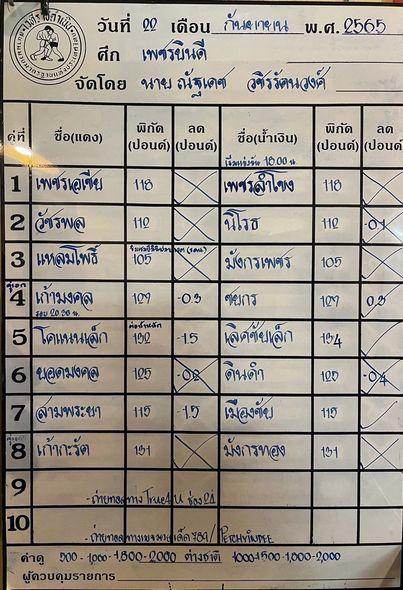 วันที่ 22 เดือน กันยายน พ.ศ. 2565
ศึก เพชรยินดี
จัดโดย นาย ณัฐเดช วชิรรัตนวงศ์
คู่ที่ ชื่อ(แดง) พิกัด (ปอนด์) ลด (ปอนด์) ชื่อ(น้ำเงิน) พิกัด (ปอนด์) ลด (ปอนด์)
เริ่มแข่งขัน 18.00 น.
1 เพชรเอเซีย 118 เพชรลำโขง 118
2 วัชรพล 112 นิโรธ 112 -0.1
3 แหลมโพธิ์ 105 มังกรเพชร 105
คู่เอก
4 เก้ามงคล 129 -0.3 ชยกร 129 0.3
รอบ 20.30 น.
5 โคแนนเล็ก ต่อน้ำหนัก 132 -1.5 เลิศชัยเล็ก 134
6 ยอดมงคล 125 -0.2 ดินดำ 125 -0.4
7 สามพระยา 115 -1.5 เมืองชัย 115
8 เก้ากะรัต 131 มังกรทอง 131
9 - ถ่ายทอดทาง True4U ช่อง 24
10 ถ่ายทอดทาง / PETCHYINDEE
ค่าดู 500 - 1,000 - 1,500 - 2,000 ต่างชาติ 1000-1500-1,800-2,000
ผู้ควบคุมรายการ